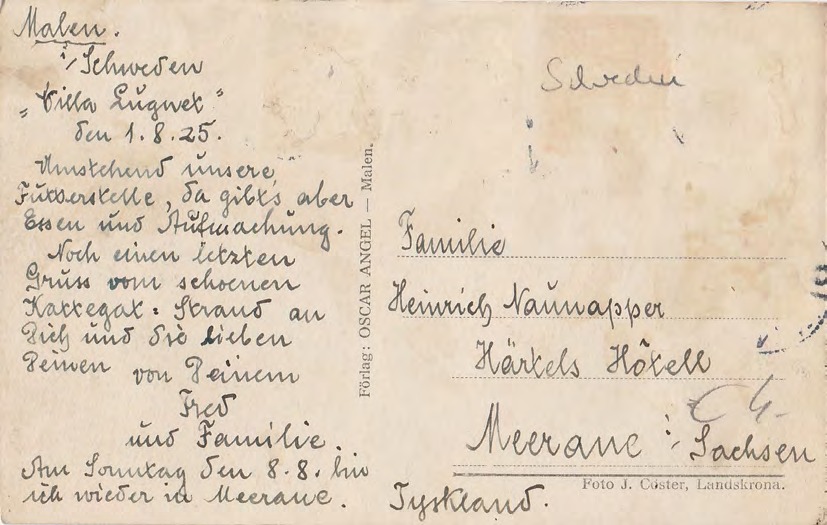 Malen.
i/Schweden
„Villa Lugnet"
den 1.8.25.
Umstehend unsere
Futterstelle, da gibt's aber
Essen und Aufmachung.
Noch einen letzten
Gruss vom schoenen
Kattegat-Strand an
Dich und die lieben
Deinen von Deinem
Fred
und Familie.
Am Sonntag den 8.8. bin
ich wieder in Meerane.
Förlag: OSCAR ANGEL — Malen.
Familie
Heinrich Naunapper
Härtels Hôtell
Meerane i/Sachsen
Foto J. Cüster, Landskrona.
Tyskland.